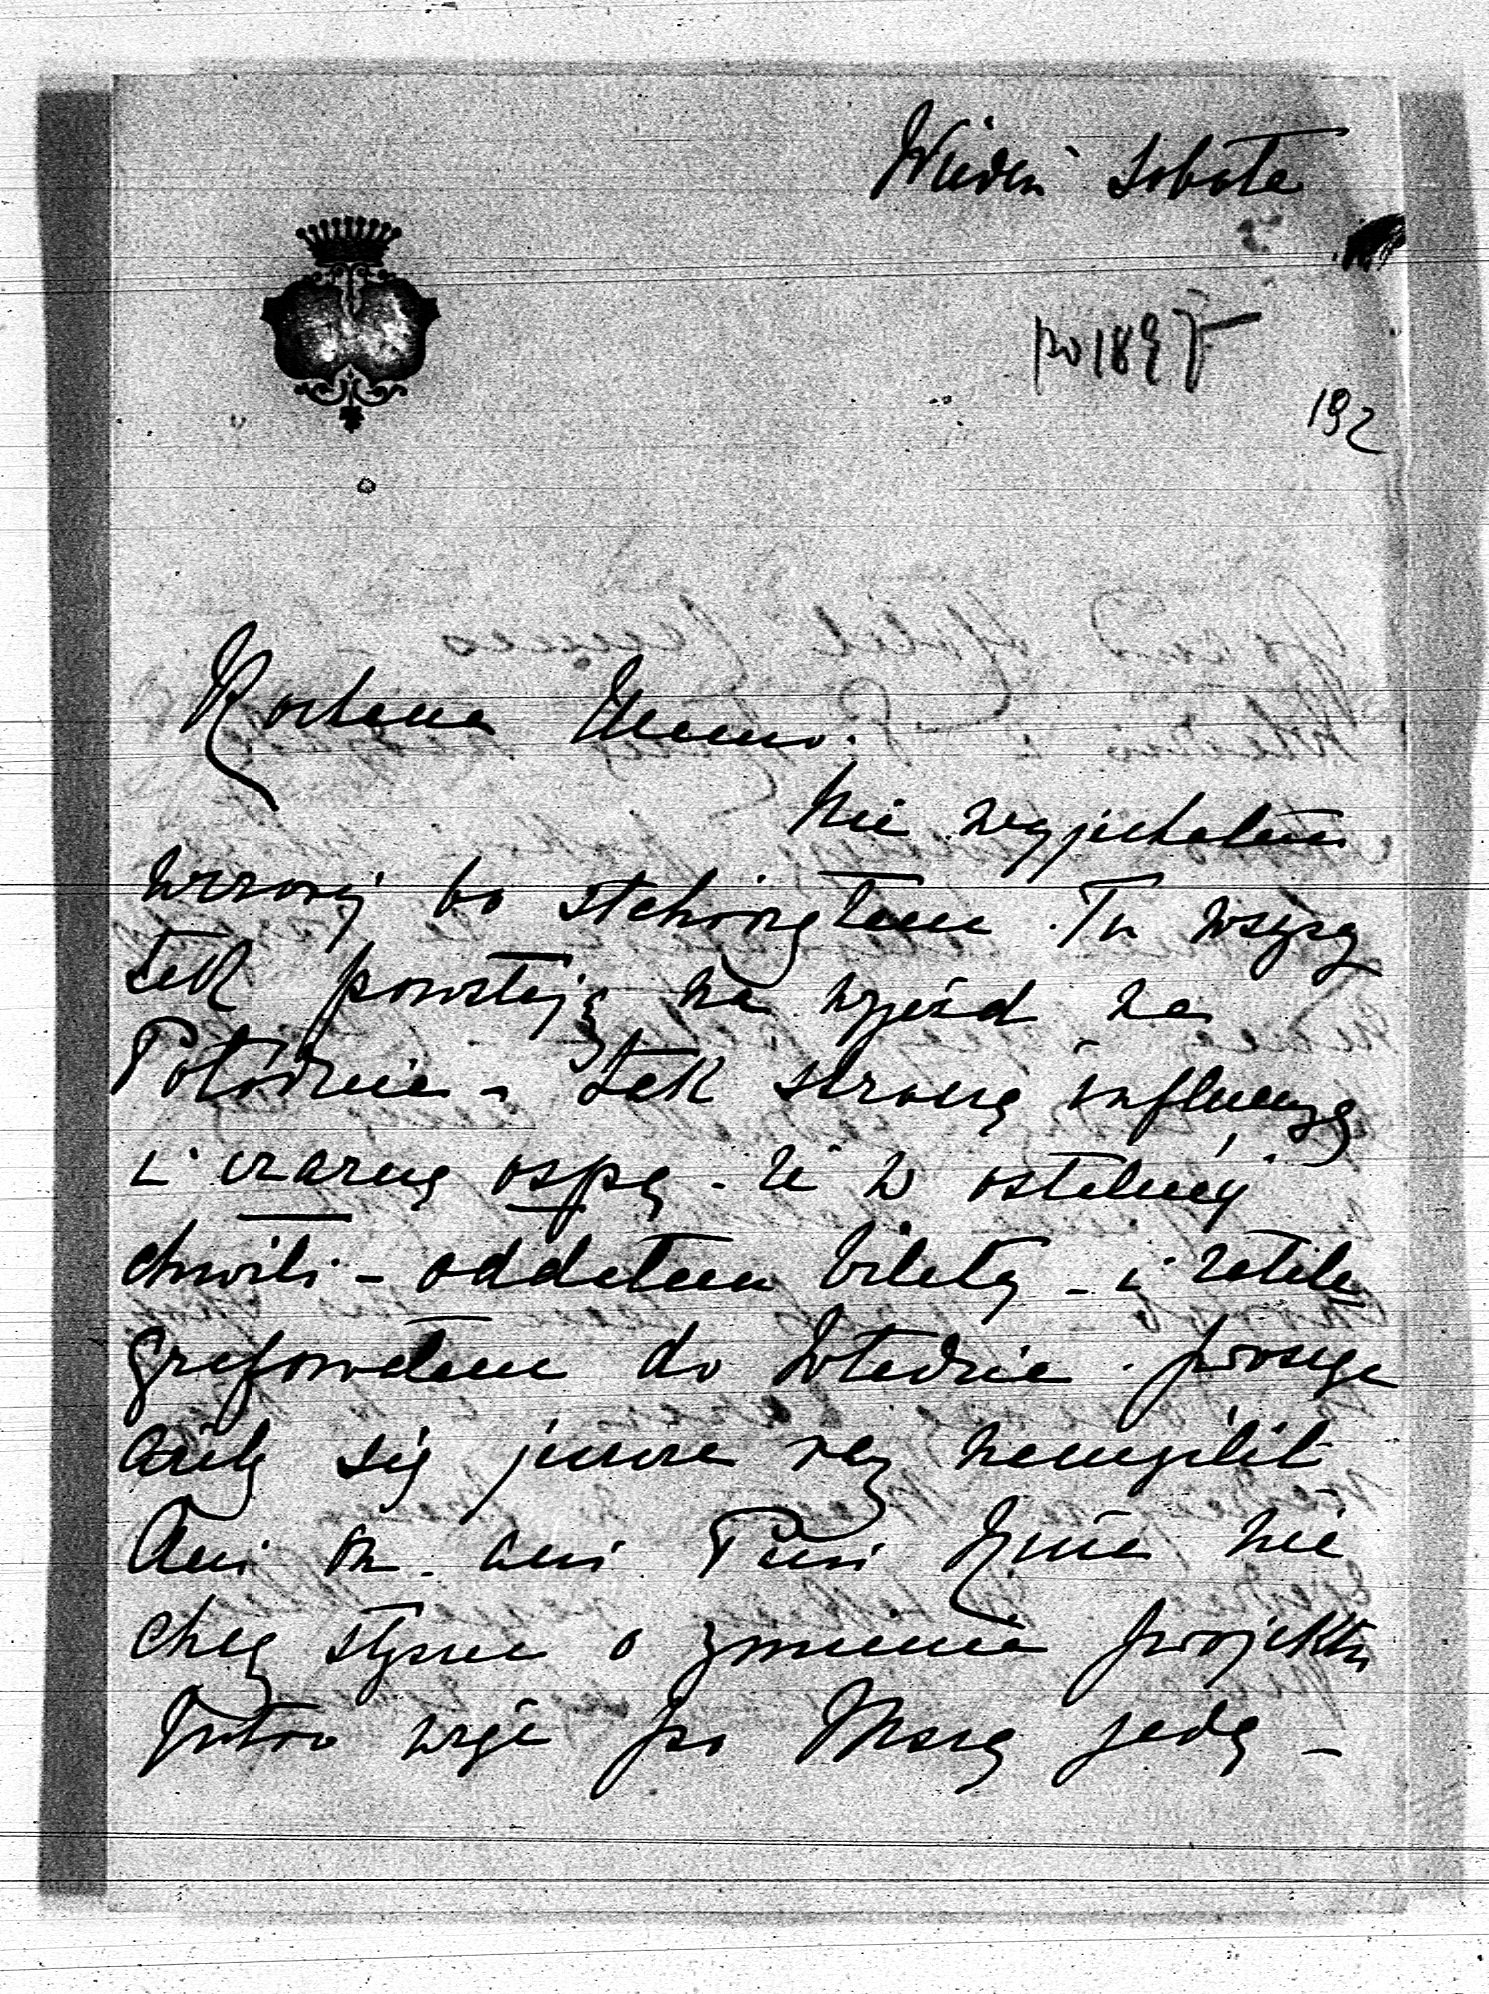 Wiedeń Sobota
po 1897
192
Kochana Mamo.
Nie wyjechałem
wczoraj bo stchórzyłem. Tu wszyscy
tak powstają na wyjazd na
Południe - tak straszą influenzą
i czarną ospą - że w ostatniej
chwili - oddałem bilety - i zatele
grafowałem do Władzia. proszę
żeby się jeszcze raz namyślił
Ani On ani Pani Zynia nie
chcą słyszeć o zmianie projektu
Jutro więc po Mszy jadę -